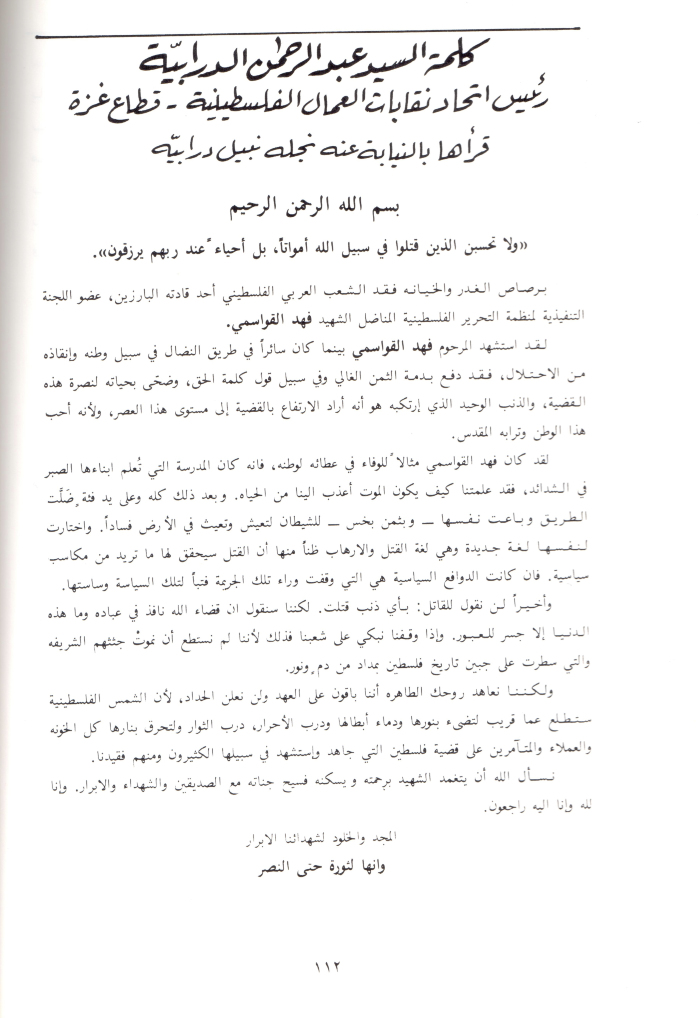 كلمة السيد عبد الرحمن الدرابيّة
رئيس اتحاد نقابات العمال الفلسطينية - قطاع غزة
قرأها بالنيابة عنه نجله نبيل درابيّه
بسم الله الرحمن الرحيم
«ولا تحسبن الذين قتلوا في سبيل الله أمواتاً، بل أحياء ٌعند ربهم يرزقون».
برصاص الغدر والخيانه فقد الشعب العربي الفلسطيني أحد قادته البارزين، عضو اللجنة
التنفيذية لمنظمة التحرير الفلسطينية المناضل الشهيد فهد القواسمي.
لقد استشهد المرحوم فهد القواسمي بينما كان سائراً في طريق النضال في سبيل وطنه وإنقاذه
من الاحتلال، فقد دفع بدمة الثمن الغالي وفي سبيل قول كلمة الحق، وضحّى بحياته لنصرة هذه
القضية، والذنب الوحيد الذي إرتكبه هو أنه أراد الارتفاع بالقضية إلى مستوى هذا العصر، ولأنه أحب
هذا الوطن وترابه المقدس.
لقد كان فهد القواسمي مثالا ًللوفاء في عطائه لوطنه، فانه كان المدرسة التي تُعلم ابناءها الصبر
في الشدائد، فقد علمتنا كيف يكون الموت أعذب الينا من الحياه. وبعد ذلك كله وعلى يد فئة ٍضَلَّت
الطريق وباعت نفسها — وبثمن بخس — للشيطان لتعيش وتعيث في الأرض فساداً. واختارت
لنفسها لغة جديدة وهي لغة القتل والارهاب ظناً منها أن القتل سيحقق لها ما تريد من مكاسب
سياسية. فان كانت الدوافع السياسية هي التي وقفت وراء تلك الجريمة فتباً لتلك السياسة وساستها.
وأخيراً لن نقول للقاتل: بأي ذنب قتلت. لكننا سنقول ان قضاء الله نافذ في عباده وما هذه
الدنيا إلا جسر للعبور. وإذا وقفنا نبكي على شعبنا فذلك لأننا لم نستطع أن نموتْ جثثهم الشريفه
والتي سطرت على جبين تاريخ فلسطين بمداد من دم ٍونور.
ولكننا نعاهد روحك الطاهره أننا باقون على العهد ولن نعلن الحداد، لأن الشمس الفلسطينية
ستطلع عما قريب لتضىء بنورها ودماء أبطالها ودرب الأحرار، درب الثوار ولتحرق بنارها كل الخونه
والعملاء والمتآمرين على قضية فلسطين التي جاهد وإستشهد في سبيلها الكثيرون ومنهم فقيدنا.
نسأل الله أن يتغمد الشهيد برحمته ويسكنه فسيح جناته مع الصديقين والشهداء والابرار. وإنا
لله وانا اليه راجعون.
المجد والخلود لشهدائنا الابرار
وانها لثورة حتى النصر
١١٢